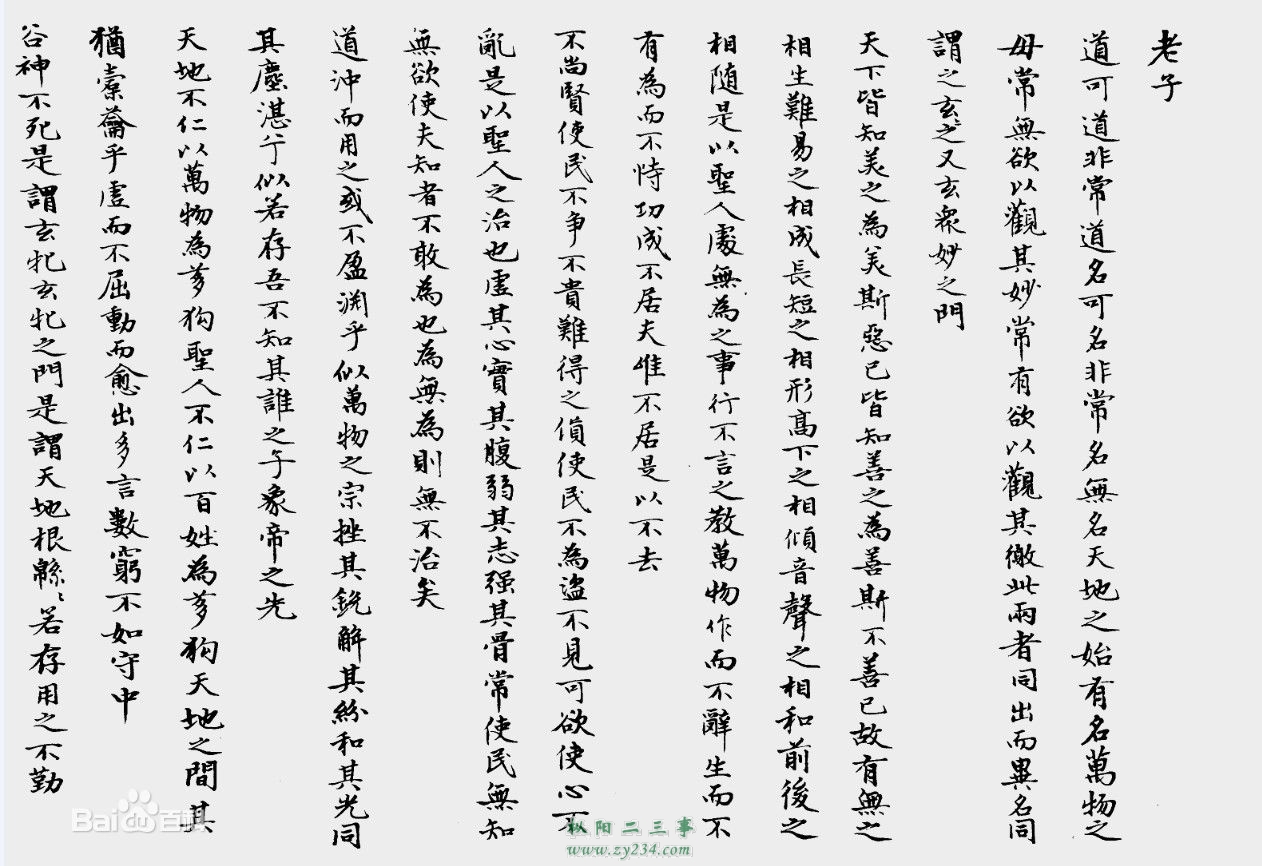 老子
道可道非常道名可名非常名無名天地之始有名萬物之
母常無欲以觀其妙常有欲以觀其徼此兩者同出而異名同
謂之玄之又玄衆妙之門
天下皆知美之為美斯惡已皆知善之為善斯不善已故有無之
相生難易之相成長短之相形髙下之相傾音聲之相和前後之
相随是以聖人處無為之事行不言之教萬物作而不辭生而不
有為而不恃功成不居夫唯不居是以不去
不尚賢使民不争不貴難得之貨使民不為盜不見可欲使心不
亂是以聖人之治也虛其心實其腹弱其志强其骨常使民無知
無欲使夫知者不敢為也為無為則無不治矣
道沖而用之或不盈渊乎似萬物之宗挫其銳解其紛和其光同
其塵湛兮似若存吾不知其誰之子象帝之先
天地不仁以萬物為芻狗聖人不仁以百姓為芻狗天地之間其
猶橐籥乎虛而不屈動而愈出多言數窮不如守中
谷神不死是謂玄牝玄牝之門是謂天地根緜〻若存用之不勤
Bai百科
枞阳二三事
www.zy234.com